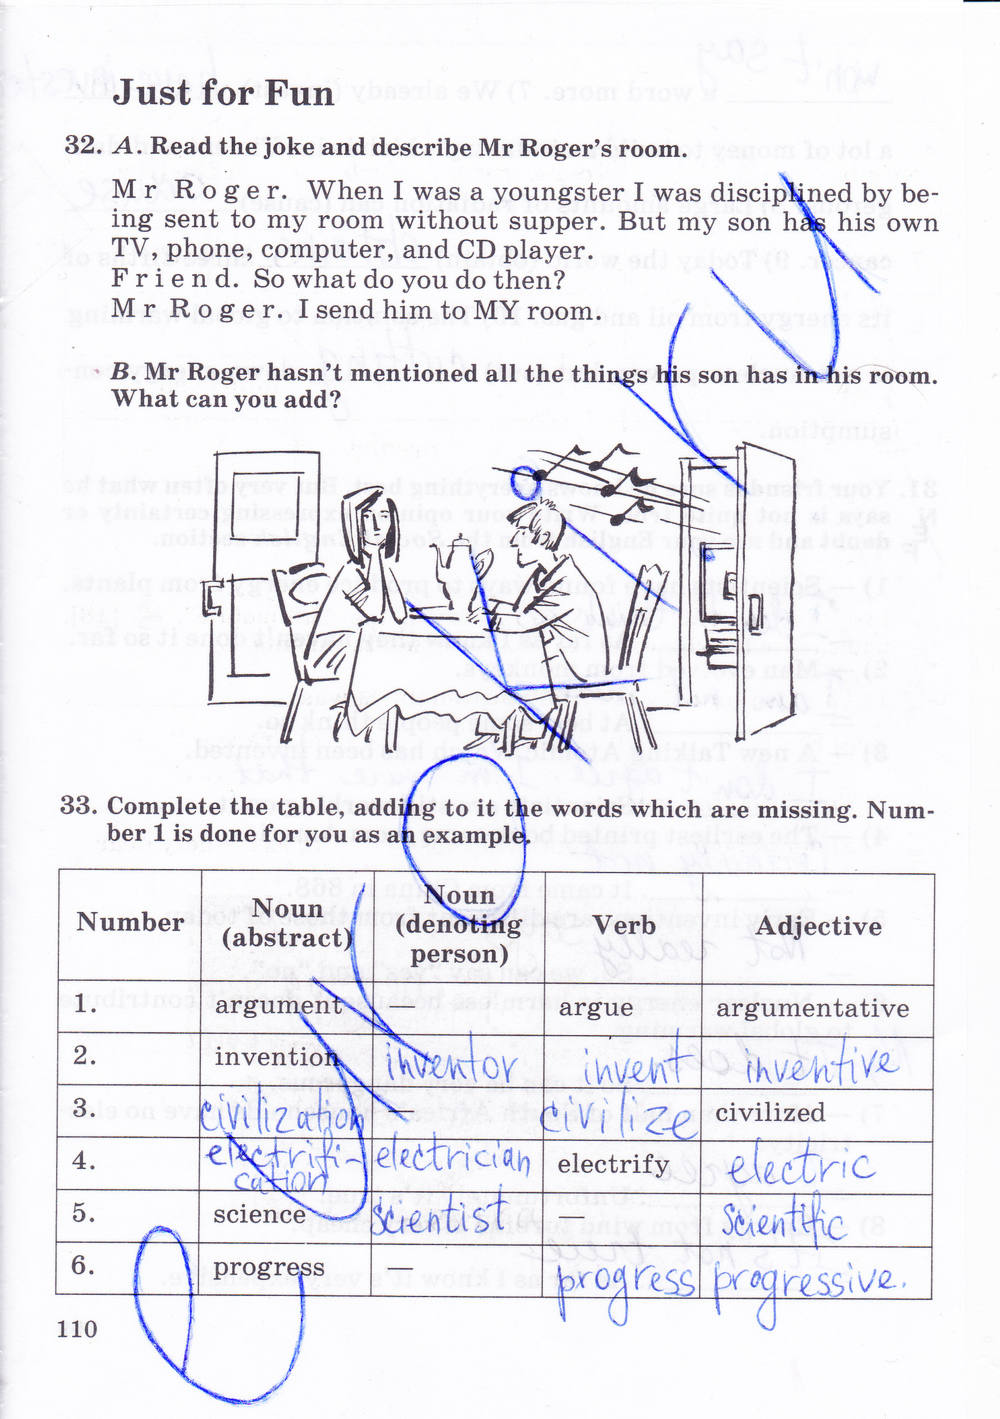 Just for Fun
32. A. Read the joke and describe Mr Roger's room.
Mr Roger. When I was a youngster I was disciplined by be-
ing sent to my room without supper. But my son has his own
TV, phone, computer, and CD player.
Friend. So what do you do then?
Mr Roger. I send him to MY room.
B. Mr Roger hasn't mentioned all the things his son has in his room.
What can you add?
33. Complete the table, adding to it the words which are missing. Num-
ber 1 is done for you as an example.
Number Noun (abstract) Noun (denoting person) Verb Adjective
1. argument — argue argumentative
2. invention inventor invent inventive
3. civilization — civilize civilized
4. electrifi-cation electrician electrify electric
5. science scientist — scientific
6. progress — progress progressive.
110